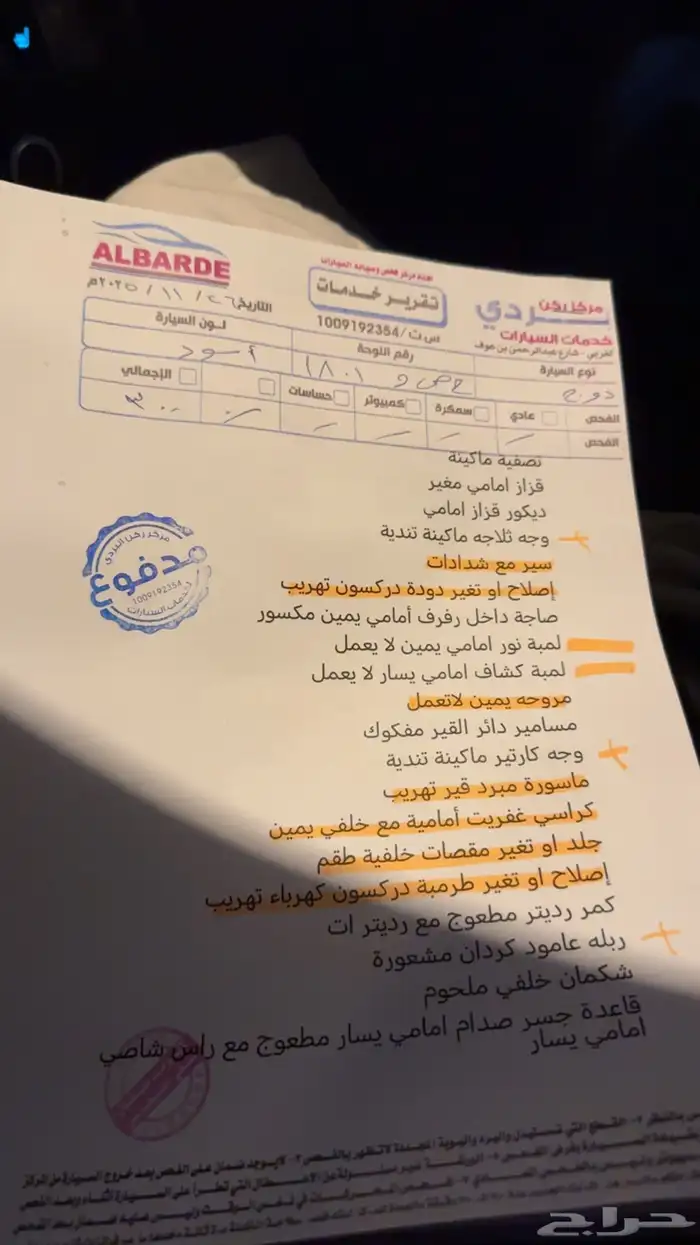 ALBARDE
التاريخ ٢٦ / ١١ / ٢٠٢٥م
تقرير خدمات
س ت/ 1009192354
مركز ركن
بردي
خدمات السيارات
نوع السيارة
رقم اللوحة
لون السيارة
دوج
ح ص و ١٨٠١
أسود
الفحص عادي سمكرة كمبيوتر حساسات الإجمالي
الفحص
٣٠٠
تصفية ماكينة
قزاز امامي مغير
ديكور قزاز امامي
وجه ثلاجه ماكينة تندية
سير مع شدادات
إصلاح او تغير دودة دركسون تهريب
صاجة داخل رفرف أمامي يمين مكسور
لمبة نور امامي يمين لا يعمل
لمبة كشاف امامي يسار لا يعمل
مروحه يمين لاتعمل
مسامير دائر القير مفكوك
وجه كارتير ماكينة تندية
ماسورة مبرد قير تهريب
كراسي غفريت أمامية مع خلفي يمين
جلد او تغير مقصات خلفية طقم
إصلاح او تغير طرمبة دركسون كهرباء تهريب
كمر رديتر مطعوج مع رديتر ات
ربله عامود كردان مشعورة
شكمان خلفي ملحوم
قاعدة جسر صدام امامي يسار مطعوج مع راس شاصي
امامي يسار
مركز ركن البردي
مدفوع
1009192354
لخدمات السيارات
حراج